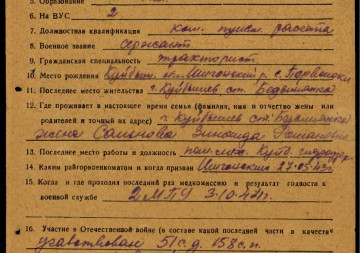 5. Образование
6. На ВУС 2
7. Должностная квалификация ком. пулем. расчета
8. Военное звание сержант
9. Гражданская специальность тракторист
10. Место рождения Куйбыш. обл. Шигонский р. с.
11. Последнее место жительства г. Куйбышев ст.
12. Где проживает в настоящее время семья (фамилия, имя и отчество жены или
родителей и точный их адрес) г. Куйбышев ст.
жена Зинаида
13. Последнее место работы и должность
14. Каким райгорвоенкоматом и когда призван Шигонским 27.05.43г.
15. Когда и где проходил последний раз медкомиссию и результат годности к
военной службе 2 МПУ 3.10.44г.
16. Участие в Отечественной войне (в составе какой последней части в качестве
участвовал 51 с.д. 158 с.п.